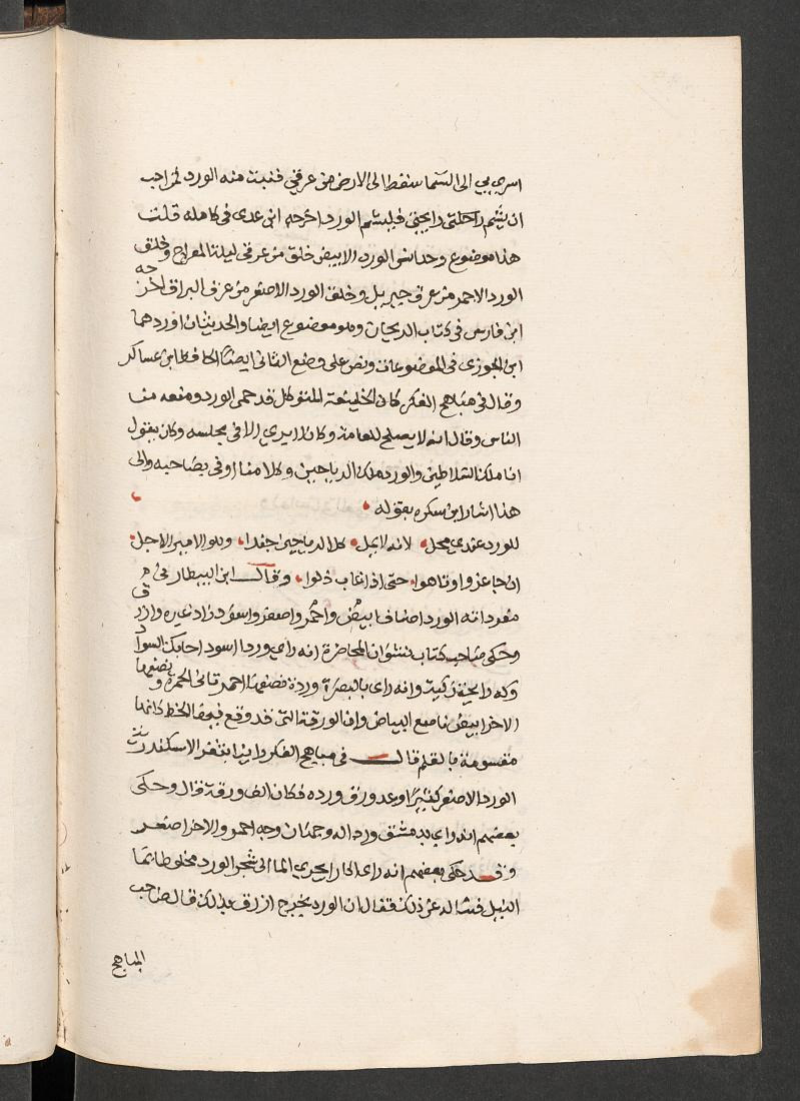 اسري بي الى السما سقط الى الارض من عرقي فنبت منه الورد فمن احب
ان يشم رايحتي فليشم الورد اخرجه ابن عدي في كامله قلت
هذا موضوع وحديث الورد الابيض خلق من عرقي ليلة المعراج وخلق
الورد الاحمر من عرق جبريل وخلق الورد الاصفر من عرق البراق اخرجه
ابن فارس في كتاب الريحان وهو موضوع ايضا والحديثان اوردهما
ابن الجوزي في الموضوعات ونص على وضع الثاني ايضا الحافظ ابن عساكر
وقال في مباهج الفكر كان الخليفة المتوكل قد حمى الورد ومنعه من
الناس وقال انه لا يصلح للعامة وكان لا يري الا في مجلسه وكان يقول
انا ملك السلاطين والورد ملك الرياحين وكل منا اوفى بصاحبه والى
هذا اشار ابن سكره بقوله
للورد عندي محل لانه لا يمل كل الرياحين جند وهو الامير الاجل
ان جا عزوا وتاهوا حتى اذا غاب ذلوا وقال ابن البيطار في
مفرداته الورد اصناف ابيض واحمر واصفر واسود زاد غيره وازرق
وحكى صاحب كتاب نشوان المحاضرة انه راي وردا اسود حالك السواد
وله رايحة زكية وانه راى بالبصرة وردة نصفها احمر قاني الحمرة ونصفها
الاخر ابيض ناصع البياض وان الورقة التي قد وقع فيها الخط كانها
مقسومة بالقلم قال في مباهج الفكر رايت ابثغر الاسكندرية
الورد الاصفر كثيرا وعد ورق ورده فكان الف ورقة قال وحكى
بعضهم انه راي بدمشق وردا له وجهان وجه احمر والاخر اصفر
وقد حكى بعضهم انه راى الحار يجري الما الى شجر الورد مخلوطا بما
النيل فساله عن ذلك فقال ان الورد يخرج ازرق بذلك قال صاحب
المباهج